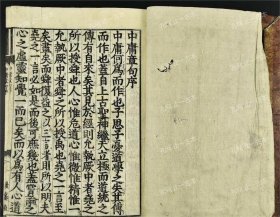 中庸章句序
中庸何為而作也子思子憂道學之失其傳
而作也蓋自上古聖神繼天立極而道統之
傳有自來矣其見於經則允執厥中者堯之
所以授舜也人心惟危道心惟微惟精惟一
允執厥中者舜之所以授禹也堯之一言至
矣盡矣而舜復益之以三言者則所以明夫
堯之一言必如是而後可庶幾也蓋嘗論之
心之虛靈知覺一而已矣而以為有人心